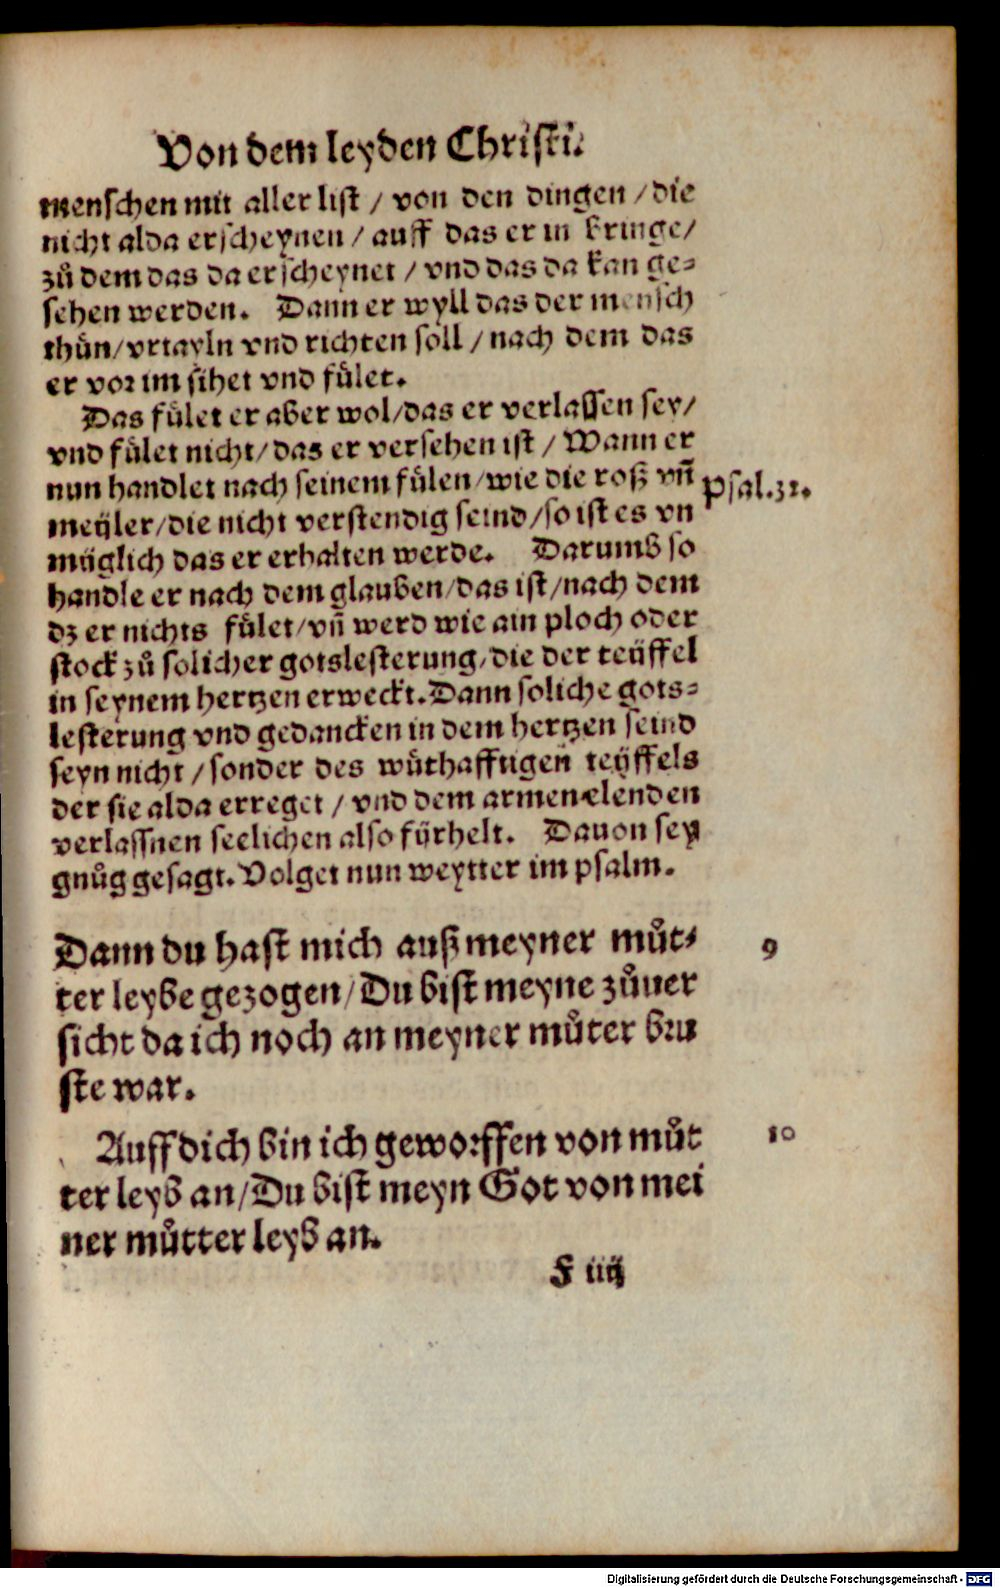 Von dem leyden Christi.
menschen mit aller list / von den dingen / die
nicht alda erscheynen / auff das er in bringe/
zů dem das da erscheynet / vnd das da kan ge⸗
sehen werden. Dann er wyll das der mensch
thůn/vrtayln vnd richten soll / nach dem das
er vor im sihet vnd fület.
Das fület er aber wol/das er verlassen sey/
vnd fület nicht/das er versehen ist / Wann er
nun handlet nach seinem fülen/wie die roß vñ
Psal.31.
meüler/die nicht verstendig seind/so ist es vn
müglich das er erhalten werde. Darumb so
handle er nach dem glauben/das ist/nach dem
dz er nichts fület/vñ werd wie ain ploch oder
stock zů solicher gotslesterung/die der teüffel
in seynem hertzen erweckt. Dann soliche gots⸗
lesterung vnd gedancken in dem hertzen seind
seyn nicht / sonder des wůthafftigen teüffels
der sie alda erreget / vnd dem armen elenden
verlassnen seelichen also fürhelt. Dauon sey
gnůg gesagt. Volget nun weytter im psalm.
Dann du hast mich auß meyner můt⸗
9
ter leybe gezogen/Du bist meyne zůuer
sicht da ich noch an meyner můter bru
ste war.
Auff dich bin ich geworffen von můt
10
ter leyb an/Du bist meyn Got von mei
ner můtter leyb an.
F iiij
Digitalisierung gefördert durch die Deutsche Forschungsgemeinschaft - DFG